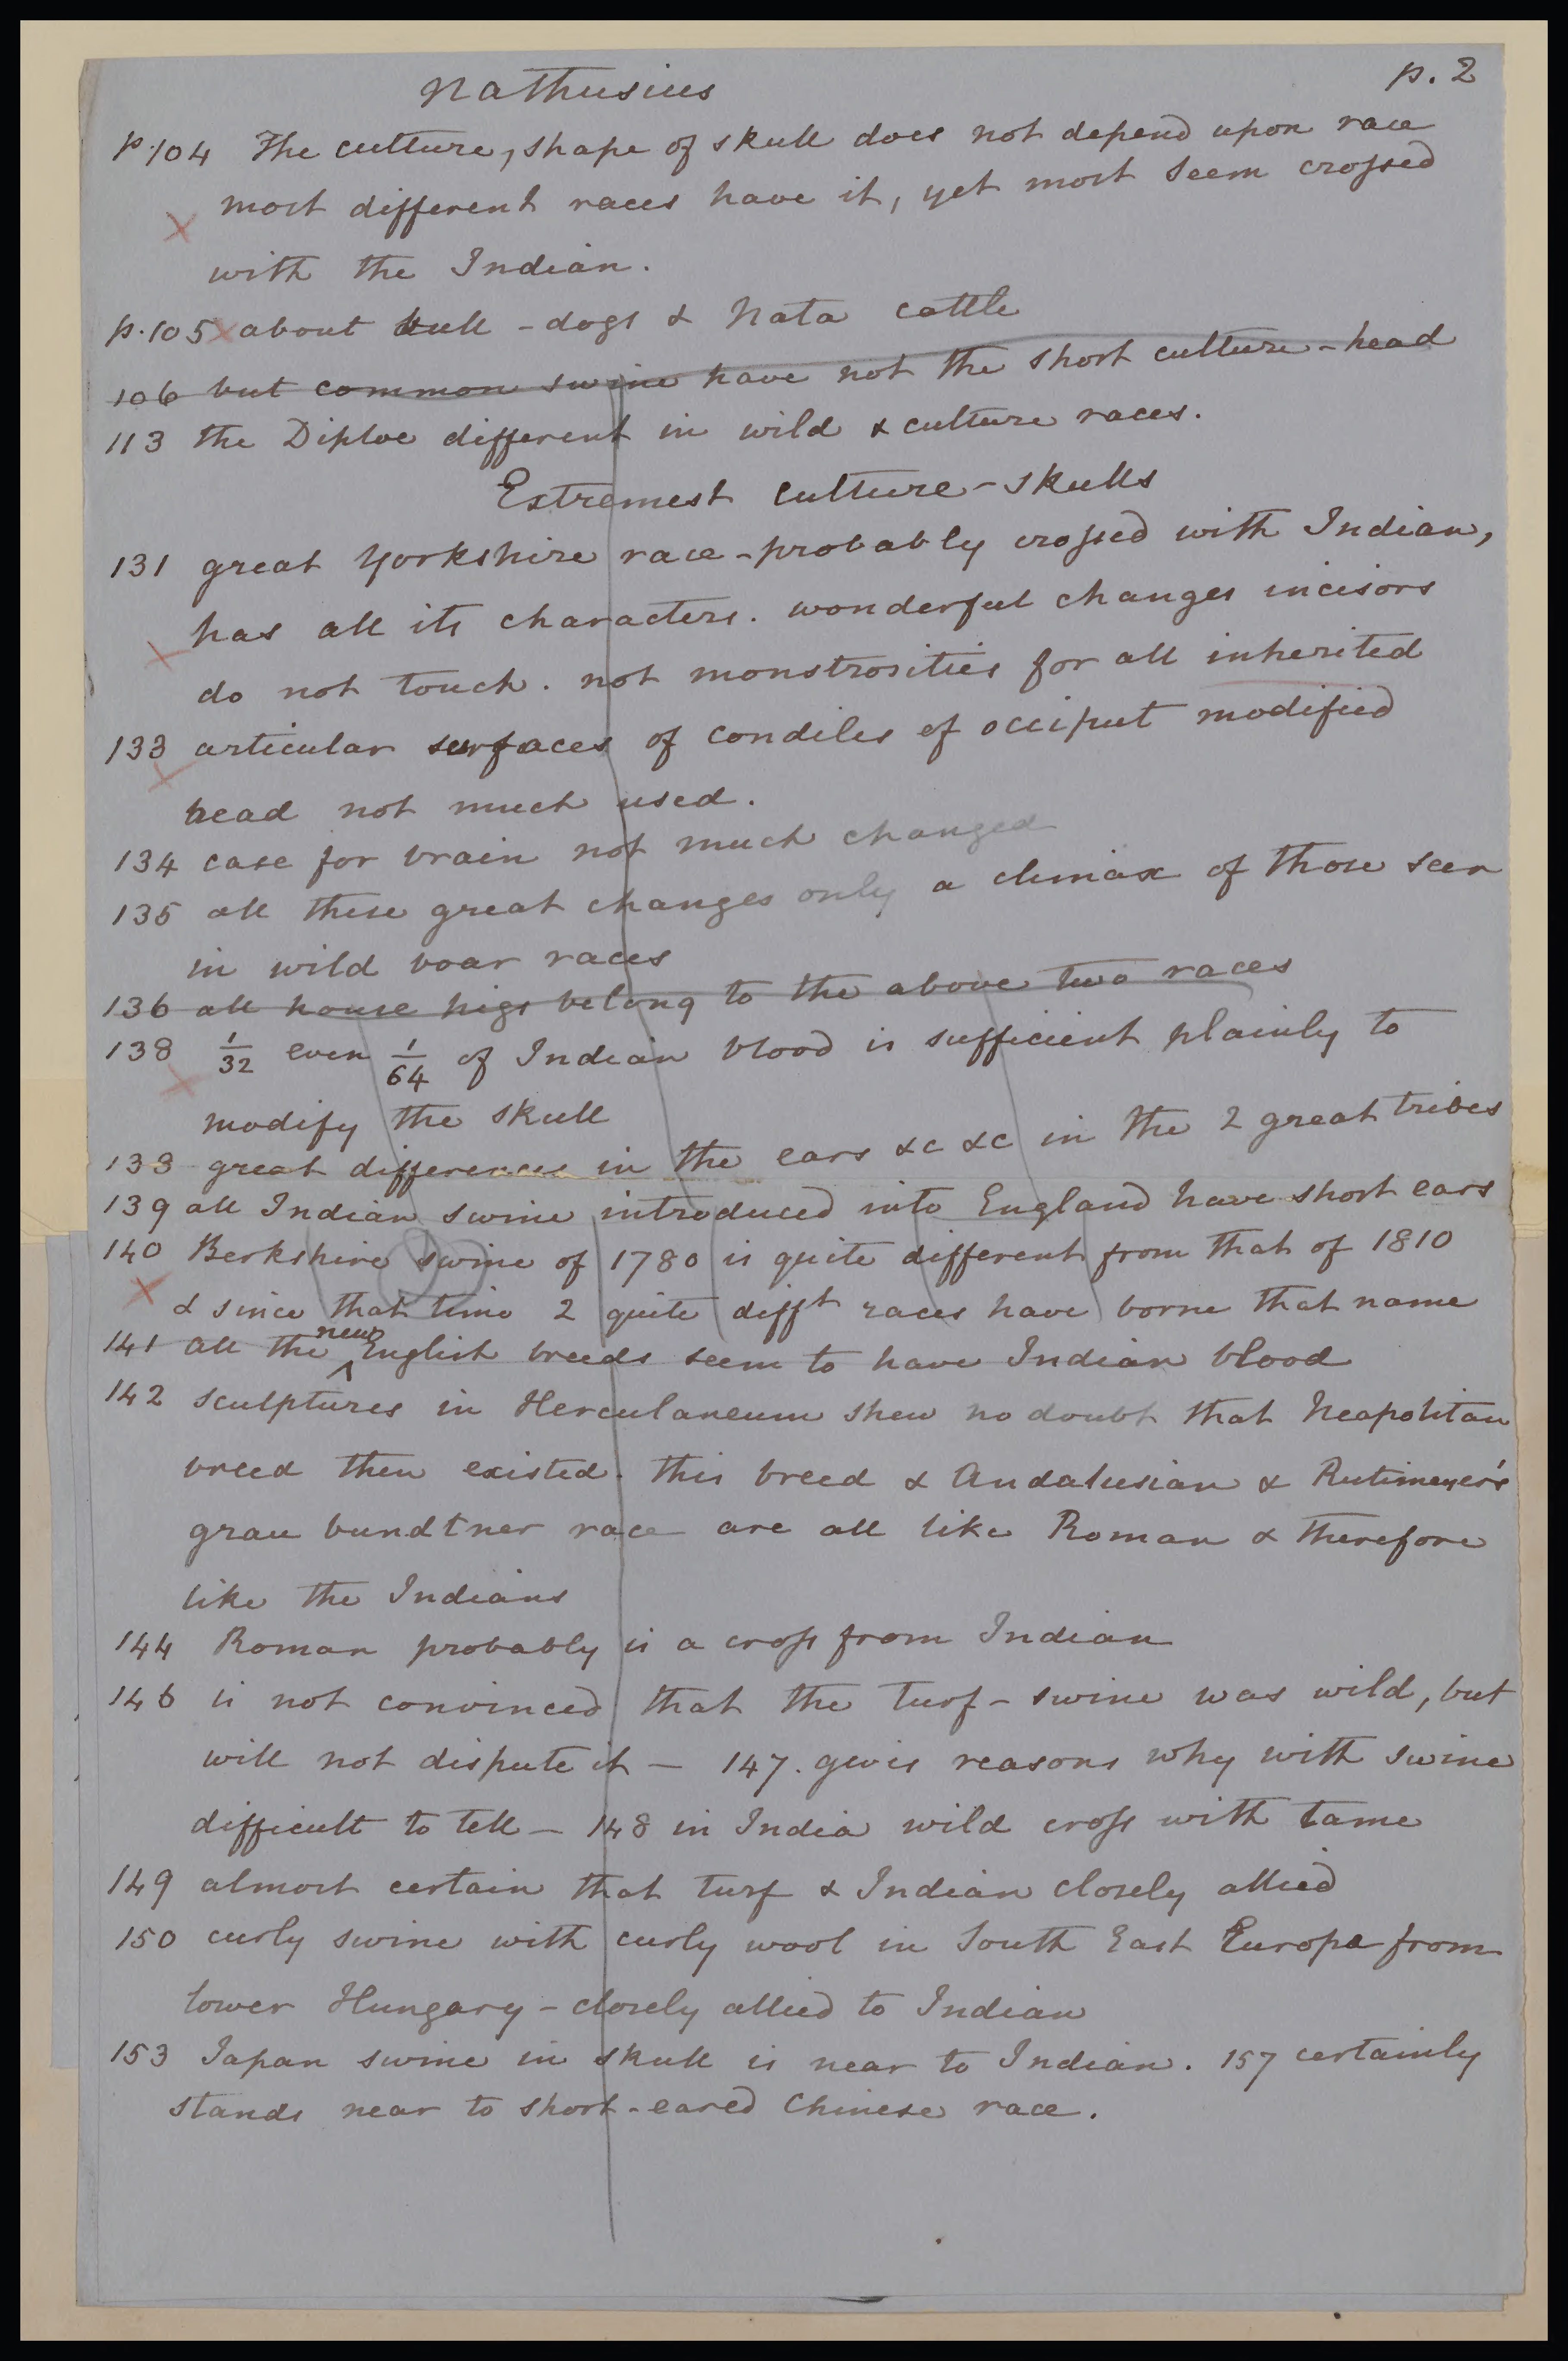 Nathusius p. 2
p. 104 The culture, shape of skull does not depend upon race
most different races have it, yet most seem crossed
with the Indian.
p. 105 about bull-dogs & Nata cattle
106 but common swine have not the short culture-head
113 the Diploe different in wild & culture races.
Extremest culture-skulls
131 great Yorkshire race-probably crossed with Indian,
has all its characters. wonderful changes incisors
do not touch. not monstrosities for all inherited
133 articular surfaces of condiles of occiput modified
head not much used.
134 case for brain not much changed
135 all these great changes only a climax of those seen
in wild boar races
136 all house pigs belong to the above two races
138 1/32 even 1/64 of Indian blood is sufficient plainly to
modify the skull
138 great differences in the ears &c &c in the 2 great tribes
139 all Indian swine introduced into England have short ears
140 Berkshire swine of 1780 is quite different from that of 1810
& since that time 2 quite difft races have borne that name
141 all the new English breeds seem to have Indian blood
142 sculptures in Herculaneum shew no doubt that Neapolitan
breed then existed. this breed & Andalusian & Rutimeyer's
grau bundtner race are all like Roman & therefore
like the Indians
144 Roman probably is a cross from Indian
146 is not convinced that the turf-swine was wild, but
will not dispute it — 147. gives reasons why with swine
difficult to tell — 148 in India wild cross with tame
149 almost certain that turf & Indian closely allied
150 curly swine with curly wool in South East Europe from
lower Hungary - closely allied to Indian
153 Japan swine in skull is near to Indian. 157 certainly
stands near to short-eared Chinese race.